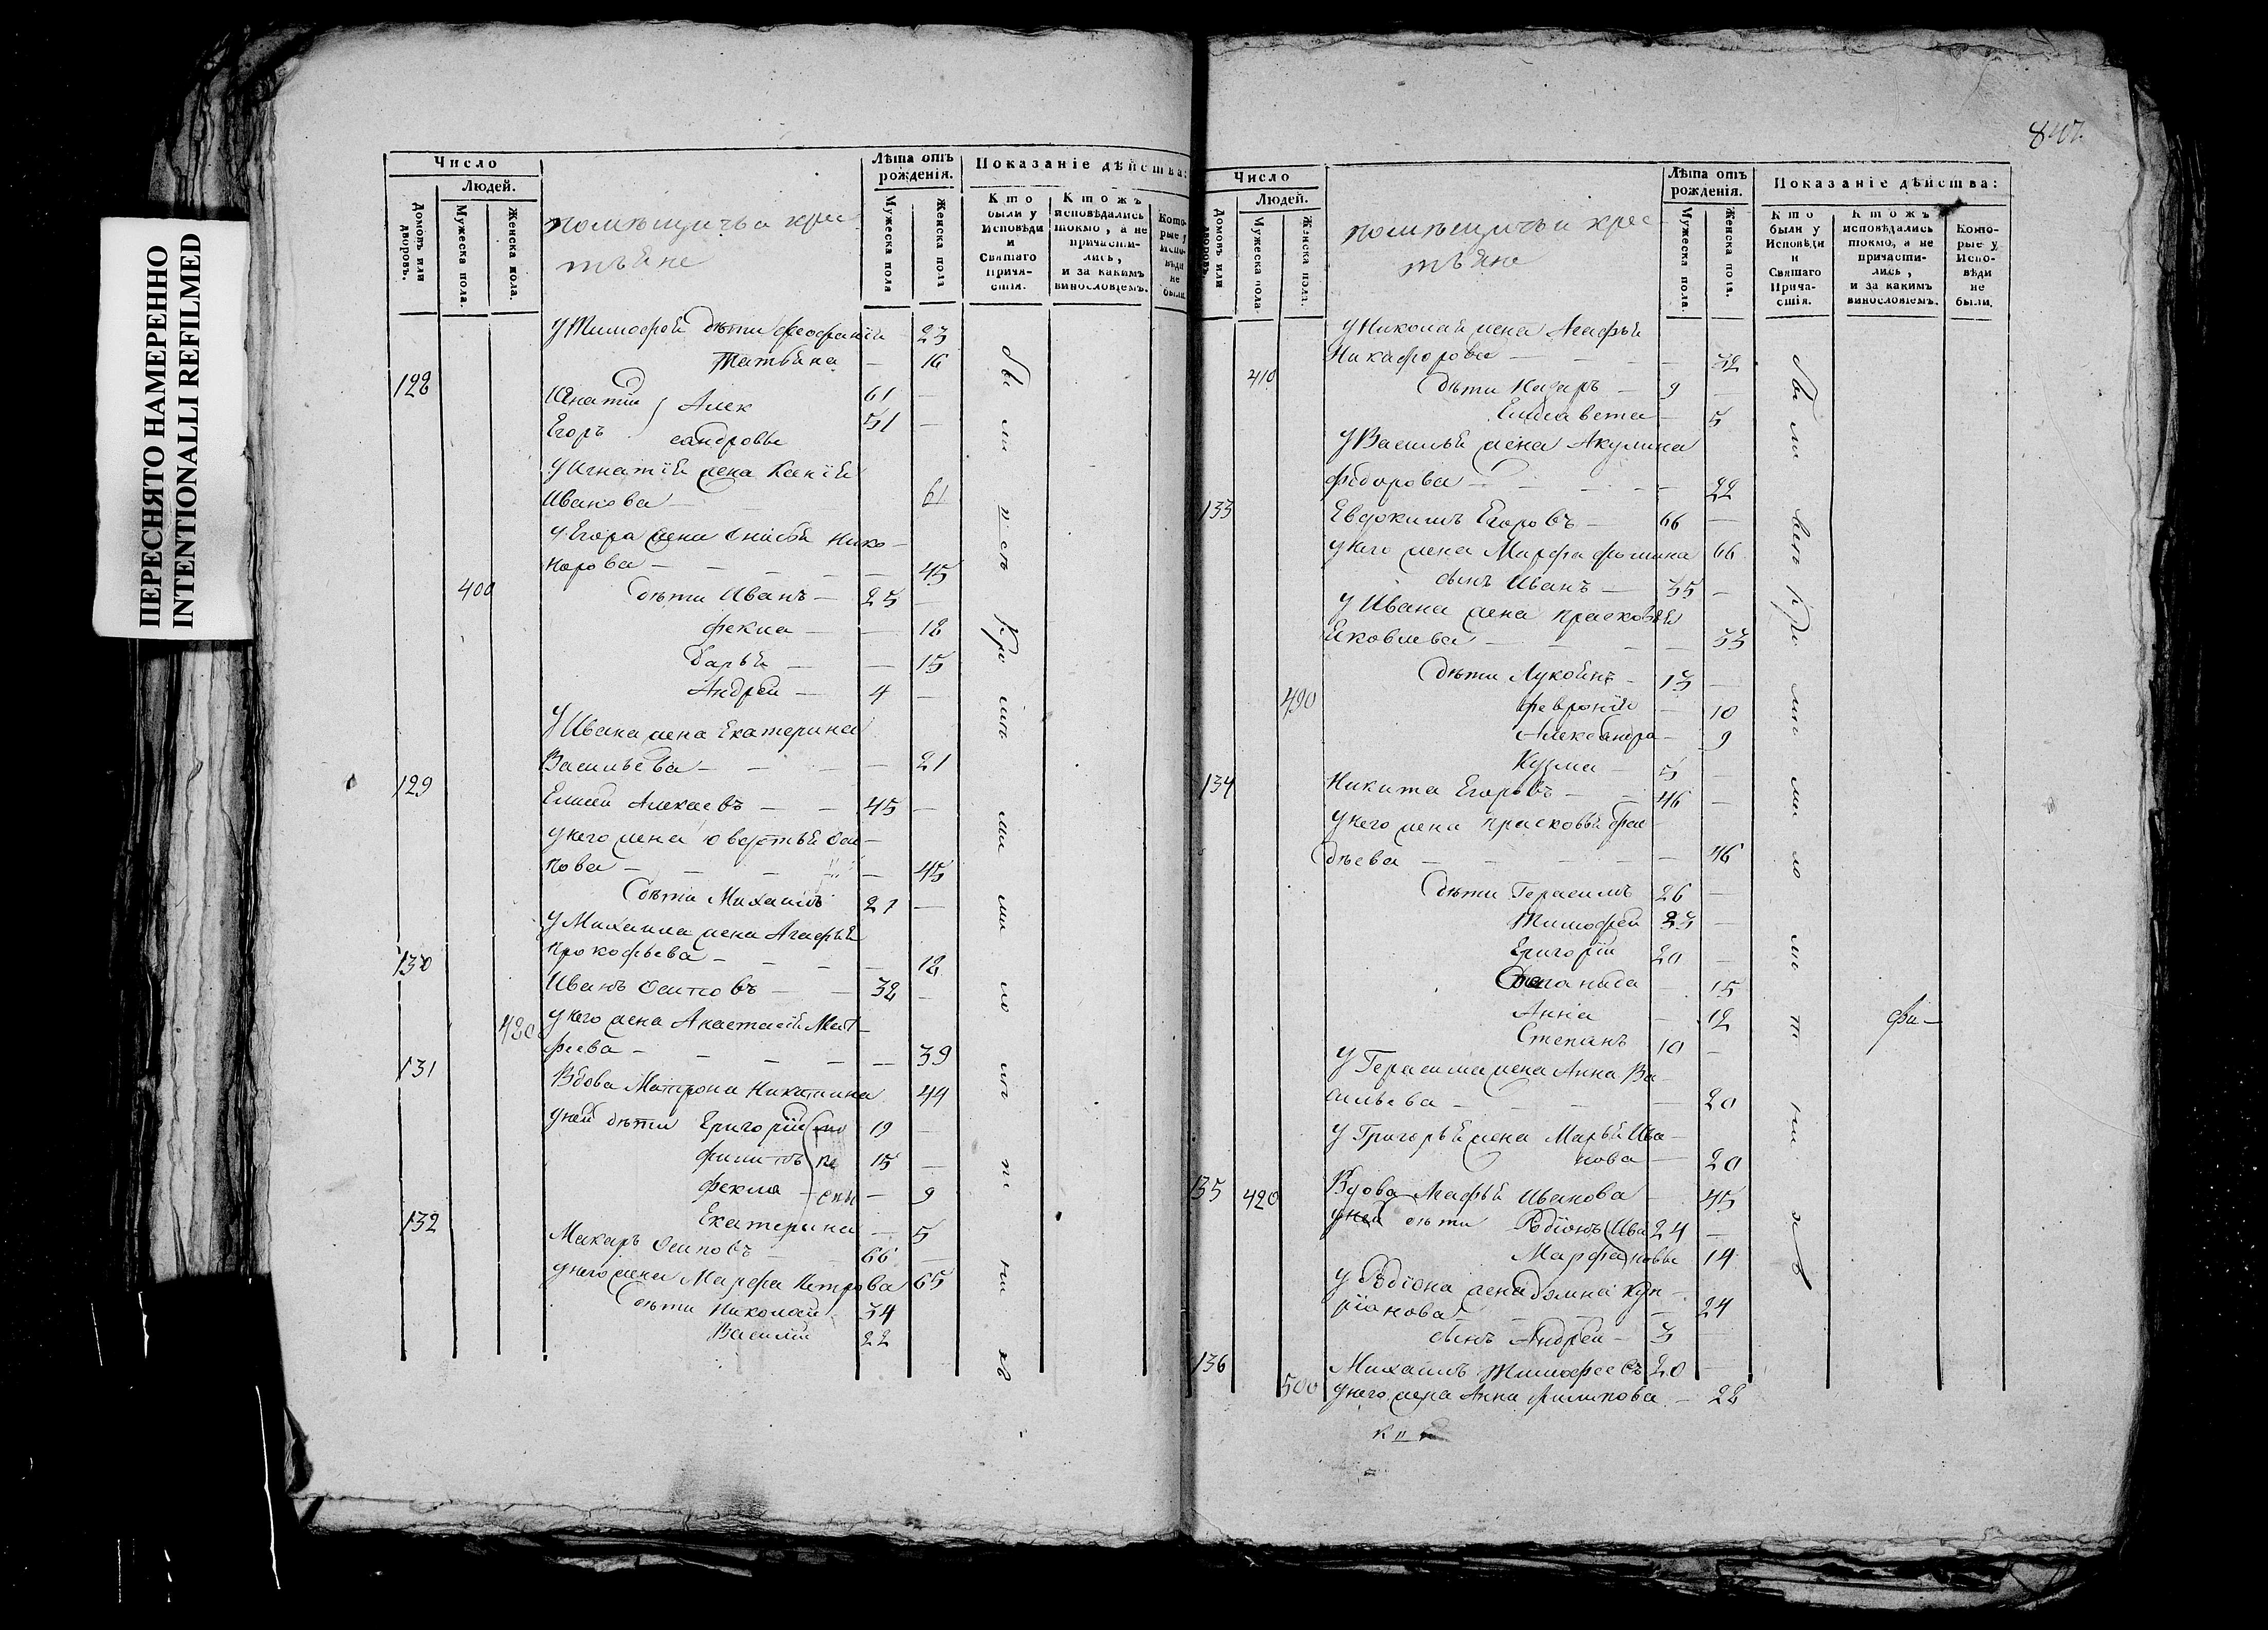 ПЕРЕСНЯТО НАМЕРЕННО
INTENTIONALLI REFILMED
Число
Людей.
Домовъ или дворовъ.
Мужеска пола.
Женска пола.
помѣщичьи крес
тьяне
Лѣта отъ рожденія.
Мужеска пола
Женска пола
Показаніе дѣйства:
Кто были у Исповѣди и Святаго Причастія.
Ктожъ исповѣдались токмо, а не причастились, и за какимъ винословіемъ.
Которые у Исповѣди не были
у Тимофея дѣти Феофанія 23
Татьяна — 16
128
Игнатій Алек 61 —
Егоръ сандровы 51 —
у Игнатія жена Ксенія
Иванова — 61
у Егора жена Нико-
норова — 45
400 дѣти Иванъ — 25 —
Фекла — — 18
Дарья — — 15
Андрей — 4 —
у Ивана жена Екатерина
Васильева — 21
129
Елисей Алексевъ — 45 —
у него жена Оси-
пова — 45
дѣти Михаилъ 21 —
у Михаила жена Агафья
Прокофьева — 18
130
Иванъ Осиповъ — 32 —
у него жена Анастасія Мат-
420
феева — 39
131
Вдова Матрона Никитина 44
у ней дѣти Григорій 19 —
Филипъ 15 —
Фекла — 9
Екатерина — 5
132
Макаръ Осиповъ 66 —
у него жена Марфа Петрова 65
дѣти Николай 34
Василій 22
847.
Число
Людей.
Домовъ или дворовъ.
Мужеска пола
Женска пола.
помѣщичьи крес
тьяне
Лѣта отъ рожденія.
Мужеска пола.
Женска пола.
Показаніе дѣйства:
Кто были у Исповѣди и Святаго Причастія.
Ктожъ исповѣдались токмо, а не причастились, и за какимъ винословіемъ.
Которые у Исповѣди не были.
у Николая жена Агафья
Никифорова — 32
410 дѣти Назаръ — 9 —
Елисавета — 5
у Василья жена Акулина
Федорова — 22
133
Евдокимъ Егоровъ — 66 —
у него жена Марфа Фомина 66
сынъ Иванъ — 35 —
у Ивана жена Прасковья
Яковлева — 33
дѣти Лукоянъ — 13 —
490 Февронія — 10
Александра — 9
Кузма — 5 —
134
Никита Егоровъ — 46 —
у него жена Прасковья Фад-
дѣева — 46
дѣти Герасимъ 26 —
Тимофей 23 —
Григорій 20 —
Степанида — 15
Анна — 12
Степанъ 10 —
у Герасима жена Анна Ва-
сильева — 20
у Григорья жена Марья Ива-
нова — 20
135 420
Вдова Агафья Иванова — 45
у ней дѣти Родіонъ Ива 24 —
Марфа новы 14
у Родіона жена Домна Куп-
ріанова — 24
сынъ Андрей — 3
136
Михаилъ Тимофеевъ 20 —
500 у него жена Анна Филипова — 22